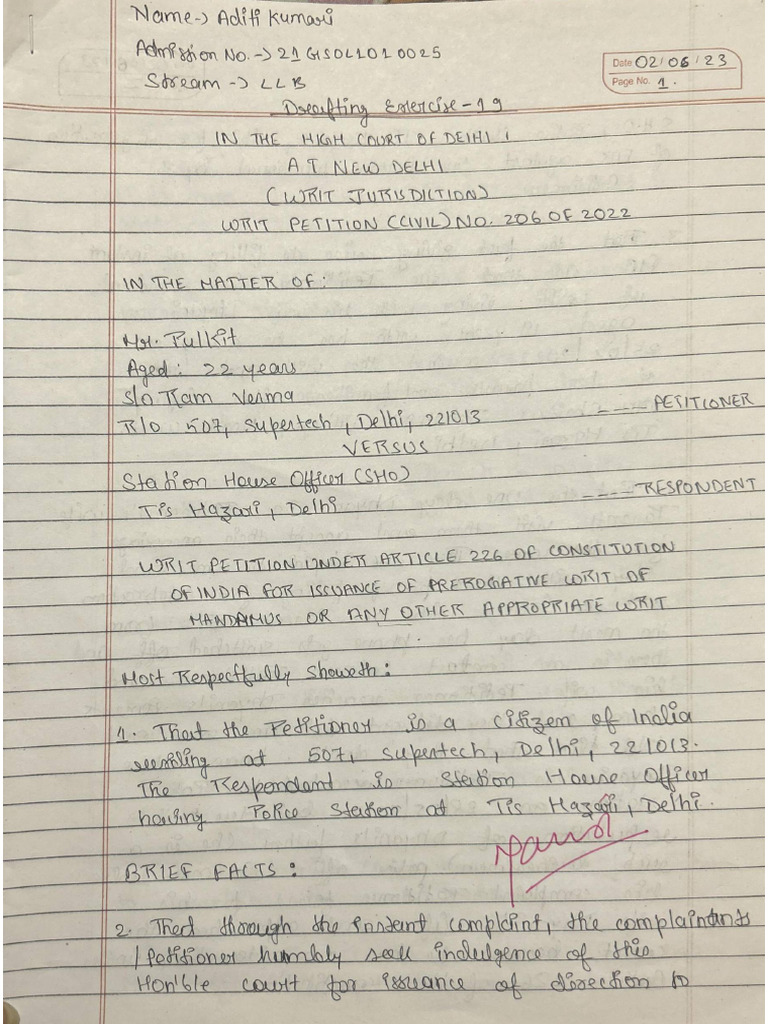 Name -> Aditi Kumari
Admission No. -> 21GSOL1010025
Stream -> LLB
Date 02/06/23
Page No. 1.
Drafting Exercise - 19
IN THE HIGH COURT OF DELHI
AT NEW DELHI
(WRIT JURISDICTION)
WRIT PETITION (CIVIL) NO. 206 OF 2022
IN THE MATTER OF:
Mr. Pulkit
Aged: 22 years
S/o Ram Verma
R/o 507, Supertech, Delhi, 221013 ---- PETITIONER
VERSUS
Station House Officer (SHO)
Tis Hazari, Delhi ---- RESPONDENT
WRIT PETITION UNDER ARTICLE 226 OF CONSTITUTION
OF INDIA FOR ISSUANCE OF PREROGATIVE WRIT OF
MANDAMUS OR ANY OTHER APPROPRIATE WRIT
Most Respectfully Showeth:
1. That the Petitioner is a citizen of India
residing at 507, Supertech, Delhi, 221013.
The Respondent is Station House Officer
having Police Station at Tis Hazari, Delhi.
BRIEF FACTS:
2. That through the instant complaint, the complainants
/Petitioner humbly seek indulgence of this
Hon'ble court for issuance of direction to